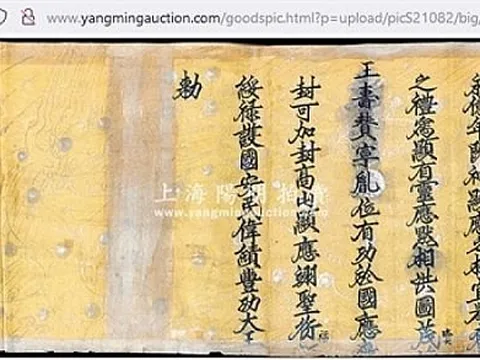 www.yangmingauction.com/goodspic.html?p=upload/picS21082/big/
年 顯應
之禮為顯有靈應默相洪圖茂
王壽贊寧胤位有功於國應
封可加封高山顯應翊聖衍
綏祿護國安民偉績豐功大王
勅
上海陽明拍賣
www.yangmingauction.com